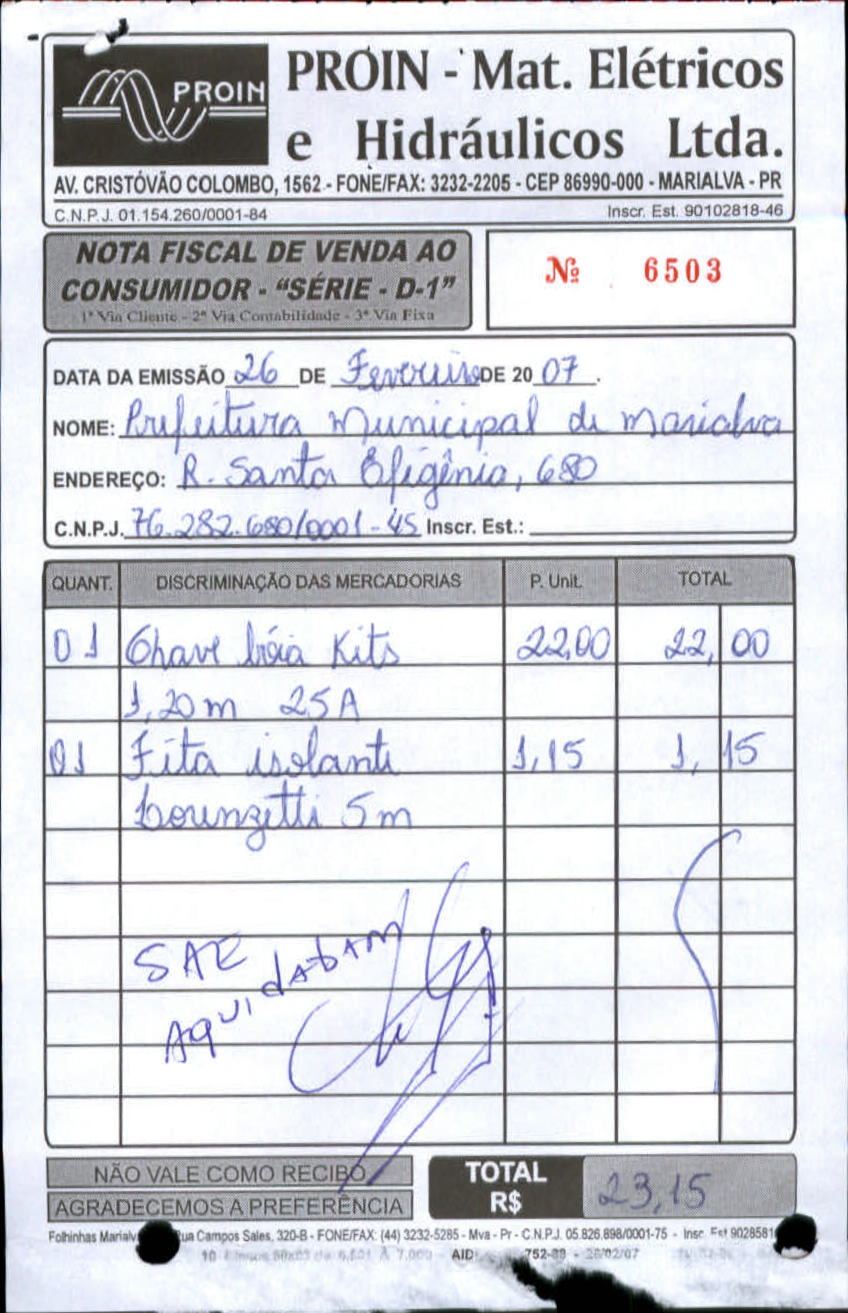 PROIN
PROIN - Mat. Elétricos
e Hidráulicos Ltda.
AV. CRISTÓVÃO COLOMBO, 1562 - FONE/FAX: 3232-2205 - CEP 86990-000 - MARIALVA - PR
C.N.P.J. 01.154.260/0001-84 Inscr. Est. 90102818-46
NOTA FISCAL DE VENDA AO
CONSUMIDOR - "SÉRIE - D-1"
1ª Via Cliente - 2ª Via Contabilidade - 3ª Via Fixa
Nº 6503
DATA DA EMISSÃO 26 DE Fevereiro DE 20 07.
NOME: Prefeitura Municipal de Marialva
ENDEREÇO: R. Santa Efigênia, 680
C.N.P.J. 76.282.680/0001-45 Inscr. Est.:
QUANT. DISCRIMINAÇÃO DAS MERCADORIAS P. Unit. TOTAL
01 Chave bóia Kits 22,00 22,00
1,20m 25A
01 Fita isolante 1,15 1,15
Lorenzetti 5m
SAE
AQUIDABAM
NÃO VALE COMO RECIBO
AGRADECEMOS A PREFERÊNCIA
TOTAL
R$ 23,15
Folhinhas Marialva Rua Campos Sales, 320-B - FONE/FAX: (44) 3232-5285 - Mva - Pr - C.N.P.J. 05.826.898/0001-75 - Insc. Est 9028581
7.000 - AID 752-